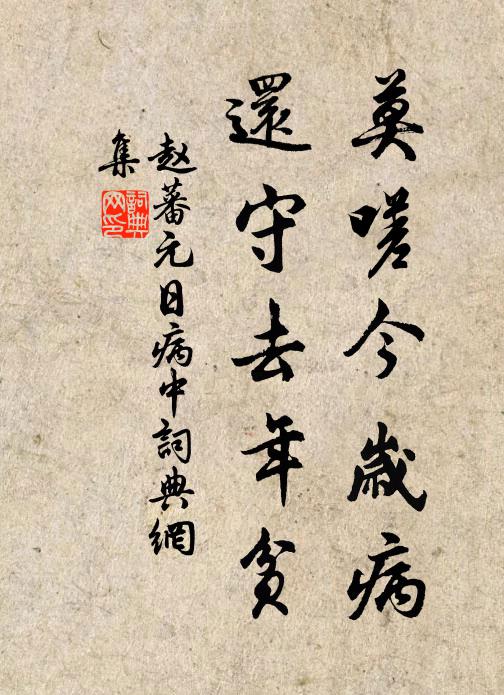 莫嗟今歲病
還守去年貧
赵蕃元日病中詞典網
集
詞典
网印